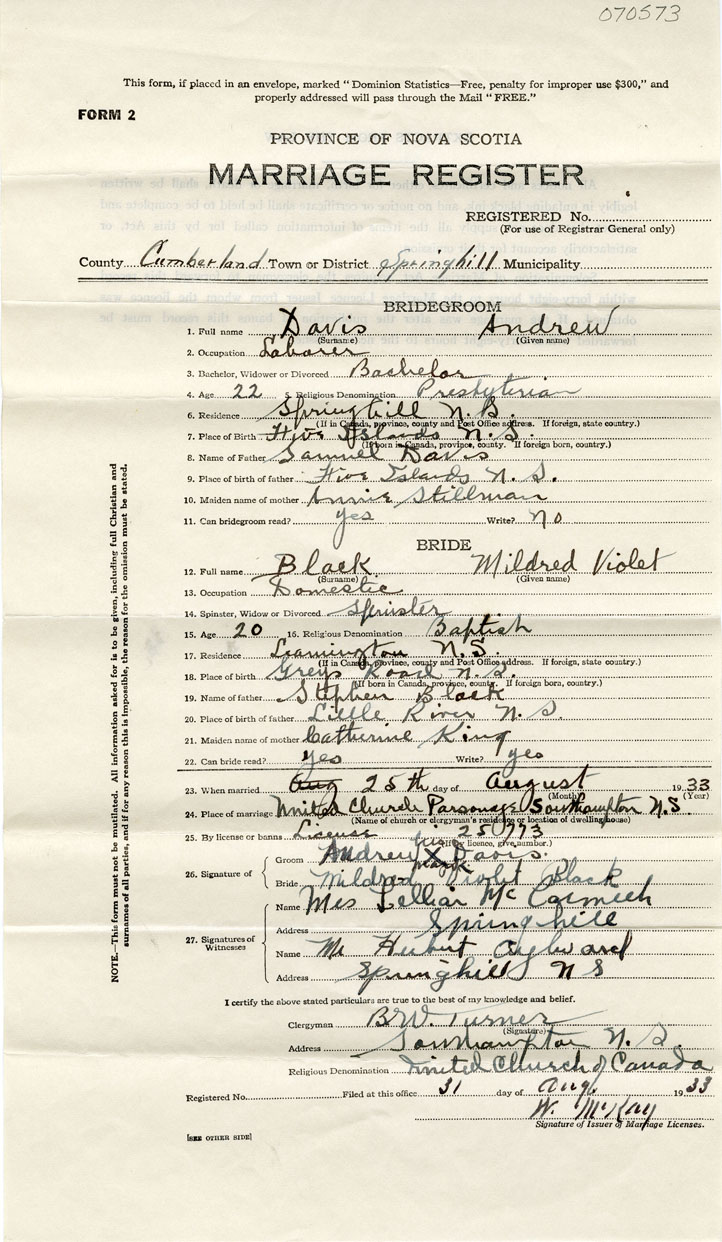 070573
This form, if placed in an envelope, marked "Dominion Statistics—Free, penalty for improper use $300," and
properly addressed will pass through the Mail "FREE."
FORM 2
PROVINCE OF NOVA SCOTIA
MARRIAGE REGISTER
REGISTERED No.
(For use of Registrar General only)
County Cumberland Town or District Springhill Municipality
BRIDEGROOM
1. Full name Davis Andrew
(Surname) (Given name)
2. Occupation Laborer
3. Bachelor, Widower or Divorced Bachelor
4. Age 22 5. Religious Denomination Presbyterian
6. Residence Springhill N.S.
(If in Canada, province, county and Post Office address. If foreign, state country.)
7. Place of Birth Five Islands N.S.
(If born in Canada, province, county. If foreign born, country.)
8. Name of Father Samuel Davis
9. Place of birth of father Five Islands N.S.
10. Maiden name of mother Annie Stillman
11. Can bridegroom read? yes Write? no
BRIDE
12. Full name Black Mildred Violet
(Surname) (Given name)
13. Occupation Domestic
14. Spinster, Widow or Divorced Spinster
15. Age 20 16. Religious Denomination Baptish
17. Residence Leamington N.S.
(If in Canada, province, county and Post Office address. If foreign, state country.)
18. Place of birth Greys Road N.S.
(If born in Canada, province, county. If foreign born, country.)
19. Name of father Stephen Black
20. Place of birth of father Little River N.S.
21. Maiden name of mother Catherine King
22. Can bride read? yes Write? yes
23. When married Aug 25th day of August 1933
(Month) (Year)
24. Place of marriage United Church Parsonage Southampton N.S.
(Name of church or clergyman's residence or location of dwelling house)
25. By license or banns License 25773
(If by licence, give number.)
26. Signature of Groom Andrew his X mark Davis.
Bride Mildred Violet Black
27. Signatures of Witnesses
Name Mrs Lillian McCormick
Address Springhill
Name Mr Hubert Aylward
Address Springhill N S
I certify the above stated particulars are true to the best of my knowledge and belief.
Clergyman B.W. Turner
(Signature)
Address Southampton N.S.
Religious Denomination United Church of Canada
Registered No. Filed at this office 31 day of Aug. 1933
W. McKay
Signature of Issuer of Marriage Licenses.
[SEE OTHER SIDE]
NOTE.—This form must not be mutilated. All information asked for is to be given, including full Christian and
surnames of all parties, and if for any reason this is impossible, the reason for the omission must be stated.